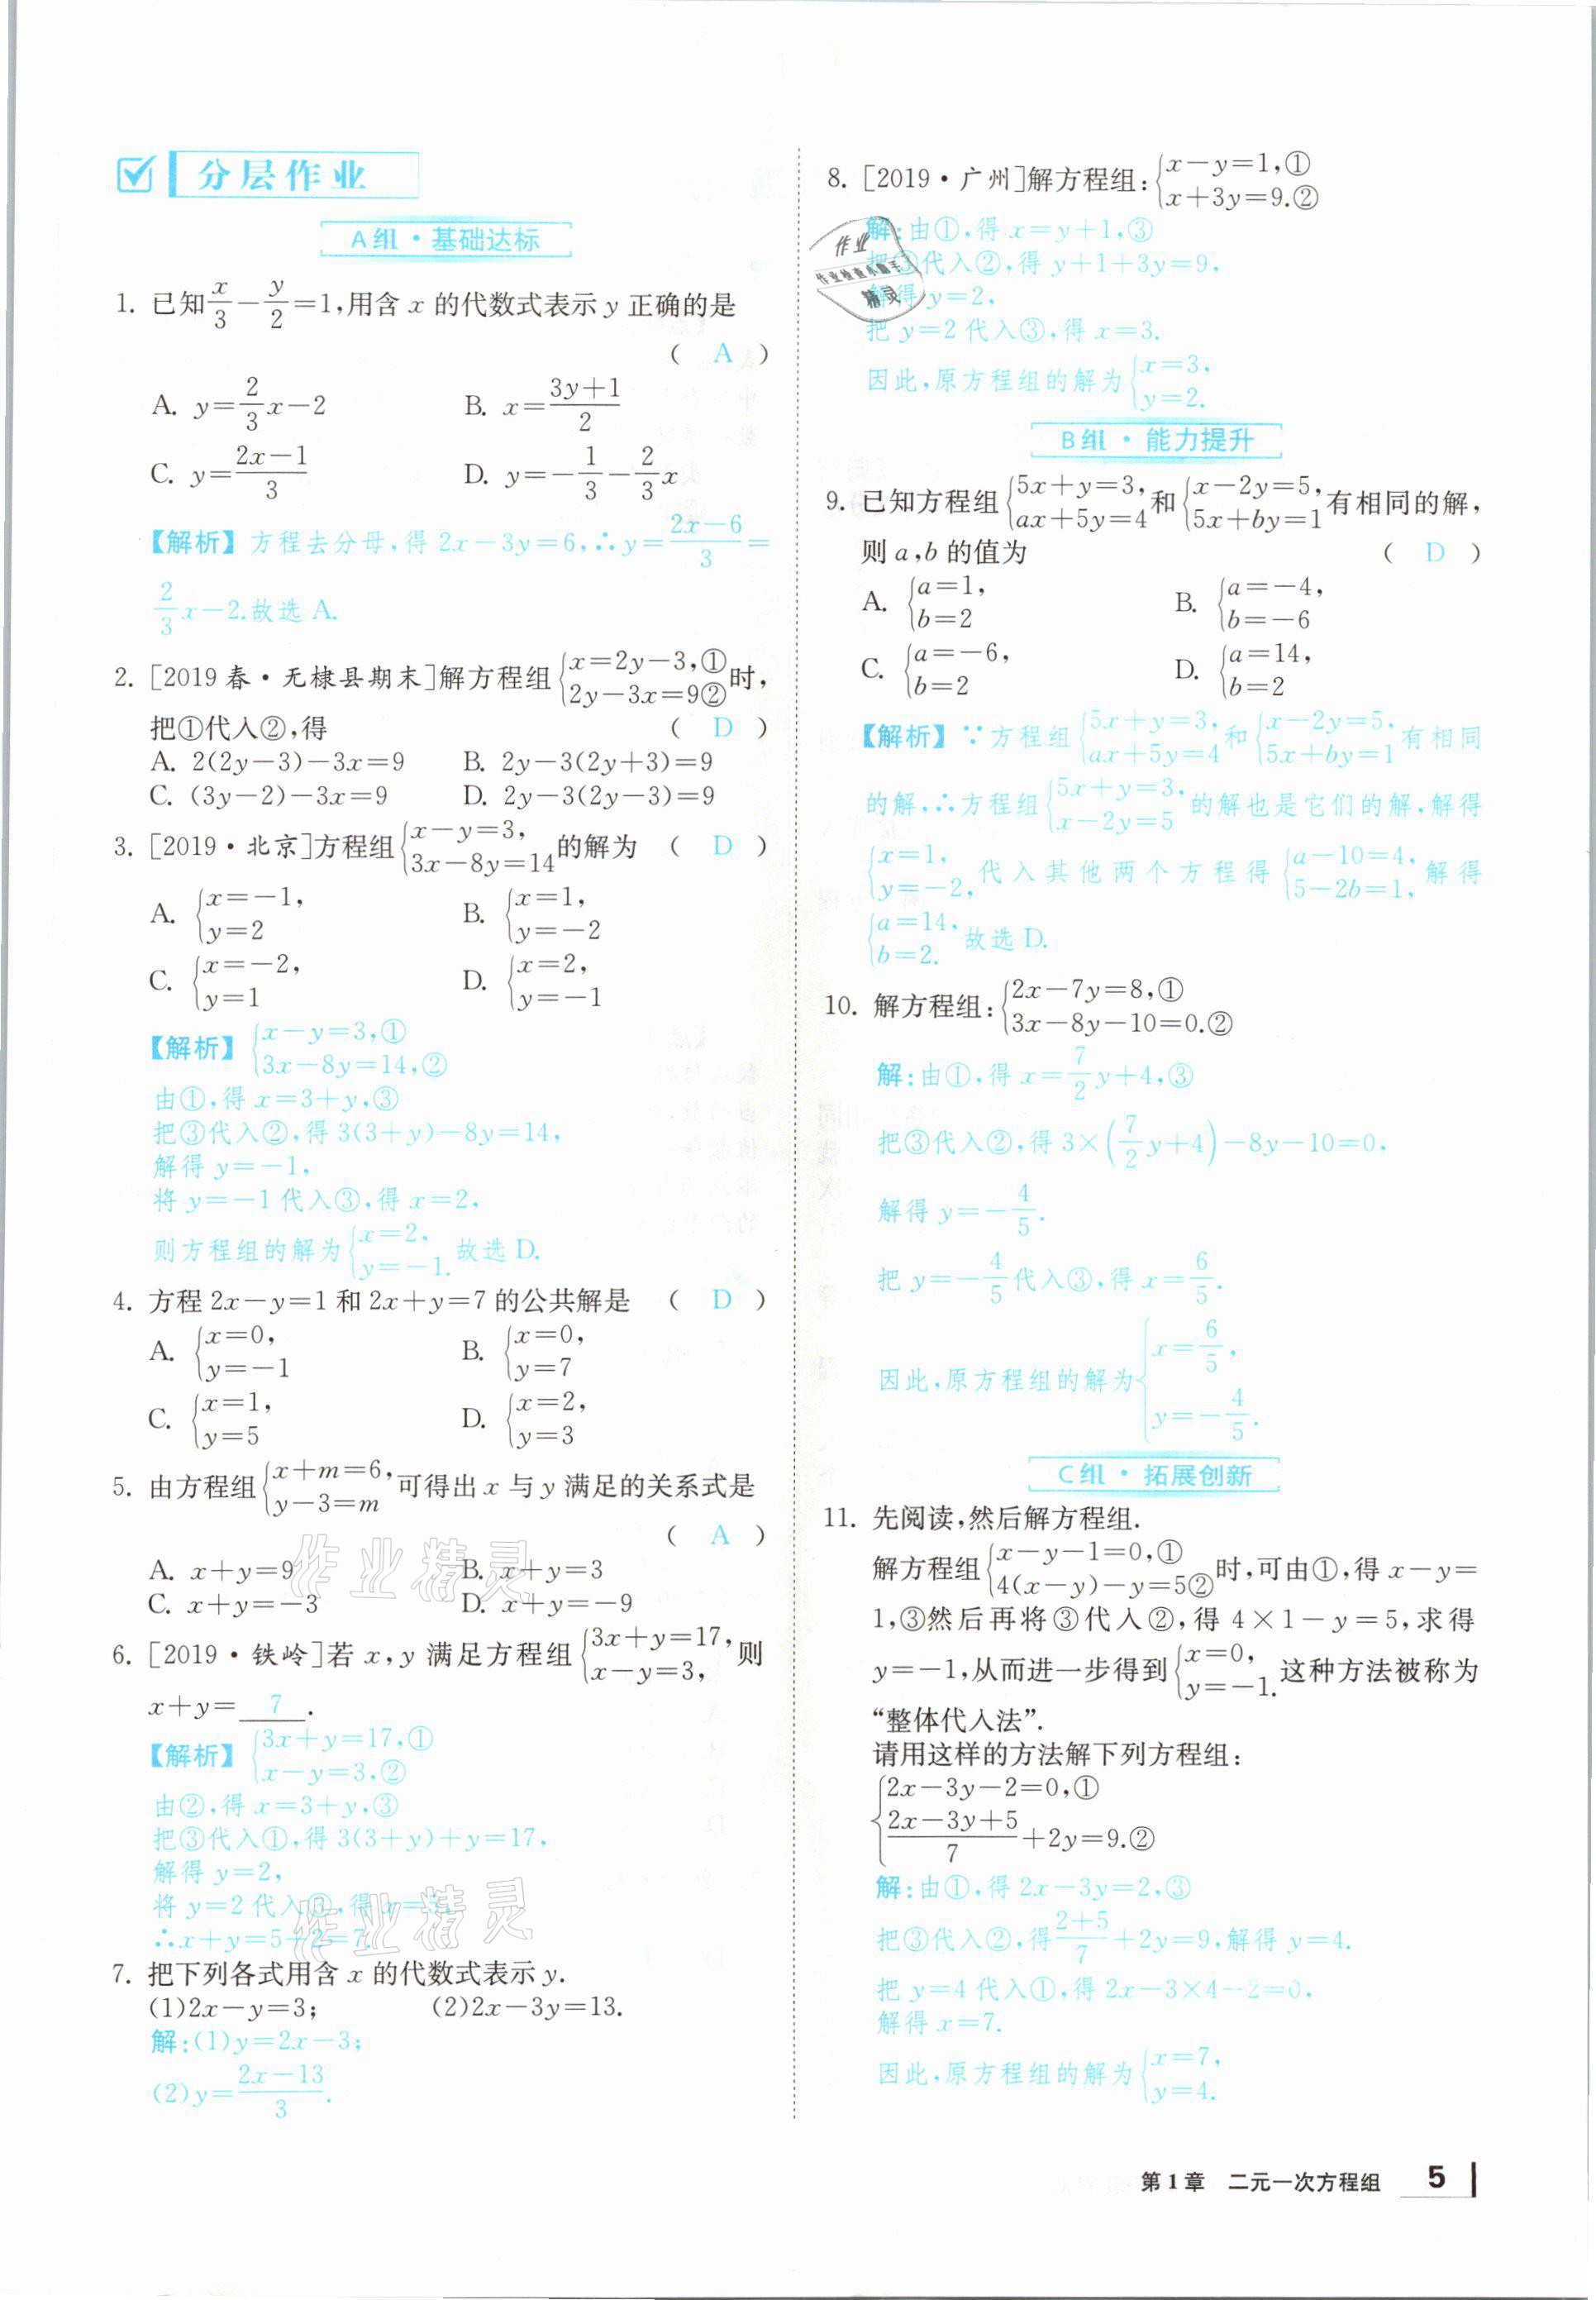 分层作业
A组·基础达标
1. 已知x/3－y/2＝1,用含 x 的代数式表示 y 正确的是
( A )
A. y＝2/3x－2  B. x＝(3y＋1)/2
C. y＝(2x－1)/3  D. y＝－1/3－2/3x
【解析】方程去分母,得 2x－3y＝6,∴y＝(2x－6)/3＝
2/3x－2.故选 A.
2. [2019 春·无棣县期末]解方程组{x＝2y－3,① 2y－3x＝9②时,
把①代入②,得 ( D )
A. 2(2y－3)－3x＝9  B. 2y－3(2y＋3)＝9
C. (3y－2)－3x＝9  D. 2y－3(2y－3)＝9
3. [2019·北京]方程组{x－y＝3, 3x－8y＝14的解为 ( D )
A. {x＝－1, y＝2  B. {x＝1, y＝－2
C. {x＝－2, y＝1  D. {x＝2, y＝－1
【解析】{x－y＝3,① 3x－8y＝14,②
由①,得 x＝3＋y,③
把③代入②,得 3(3＋y)－8y＝14,
解得 y＝－1,
将 y＝－1 代入③,得 x＝2,
则方程组的解为{x＝2, y＝－1.故选 D.
4. 方程 2x－y＝1 和 2x＋y＝7 的公共解是 ( D )
A. {x＝0, y＝－1  B. {x＝0, y＝7
C. {x＝1, y＝5  D. {x＝2, y＝3
5. 由方程组{x＋m＝6, y－3＝m可得出 x 与 y 满足的关系式是
( A )
A. x＋y＝9  B. x＋y＝3
C. x＋y＝－3  D. x＋y＝－9
6. [2019·铁岭]若 x,y 满足方程组{3x＋y＝17, x－y＝3, 则
x＋y＝ 7 .
【解析】{3x＋y＝17,① x－y＝3,②
由②,得 x＝3＋y,③
把③代入①,得 3(3＋y)＋y＝17,
解得 y＝2,
将 y＝2 代入③,得 x＝5,
∴x＋y＝5＋2＝7.
7. 把下列各式用含 x 的代数式表示 y.
(1)2x－y＝3;  (2)2x－3y＝13.
解:(1)y＝2x－3;
(2)y＝(2x－13)/3.
8. [2019·广州]解方程组:{x－y＝1,① x＋3y＝9.②
解:由①,得 x＝y＋1,③
把③代入②,得 y＋1＋3y＝9,
解得 y＝2,
把 y＝2 代入③,得 x＝3.
因此,原方程组的解为{x＝3, y＝2.
B组·能力提升
9. 已知方程组{5x＋y＝3, ax＋5y＝4和{x－2y＝5, 5x＋by＝1有相同的解,
则 a,b 的值为 ( D )
A. {a＝1, b＝2  B. {a＝－4, b＝－6
C. {a＝－6, b＝2  D. {a＝14, b＝2
【解析】∵方程组{5x＋y＝3, ax＋5y＝4和{x－2y＝5, 5x＋by＝1有相同
的解,∴方程组{5x＋y＝3, x－2y＝5的解也是它们的解,解得
{x＝1, y＝－2,代入其他两个方程得{a－10＝4, 5－2b＝1,解得
{a＝14, b＝2.故选 D.
10. 解方程组:{2x－7y＝8,① 3x－8y－10＝0.②
解:由①,得 x＝7/2y＋4,③
把③代入②,得 3×(7/2y＋4)－8y－10＝0,
解得 y＝－4/5.
把 y＝－4/5代入③,得 x＝6/5.
因此,原方程组的解为{x＝6/5, y＝－4/5.
C组·拓展创新
11. 先阅读,然后解方程组.
解方程组{x－y－1＝0,① 4(x－y)－y＝5②时,可由①,得 x－y＝
1,③然后再将③代入②,得 4×1－y＝5,求得
y＝－1,从而进一步得到{x＝0, y＝－1.这种方法被称为
“整体代入法”.
请用这样的方法解下列方程组:
{2x－3y－2＝0,① (2x－3y＋5)/7＋2y＝9.②
解:由①,得 2x－3y＝2,③
把③代入②,得(2＋5)/7＋2y＝9,解得 y＝4.
把 y＝4 代入①,得 2x－3×4－2＝0,
解得 x＝7.
因此,原方程组的解为{x＝7, y＝4.
第1章 二元一次方程组 5
作业
作业检查小助手
精灵
作业精灵
作业精灵